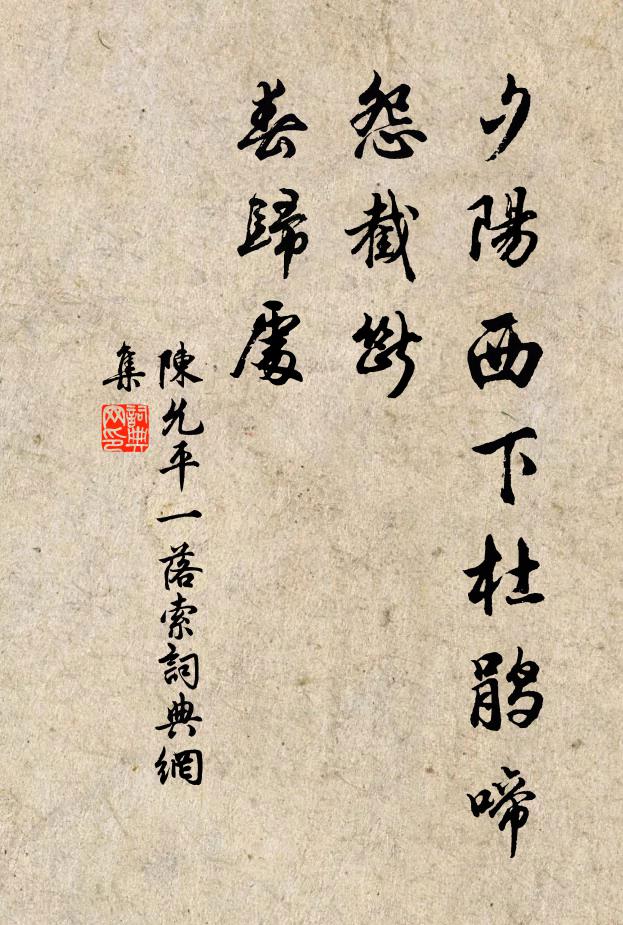 夕陽西下杜鵑啼
怨截斷
春歸處
陳允平一落索詞典網
集
詞典網印